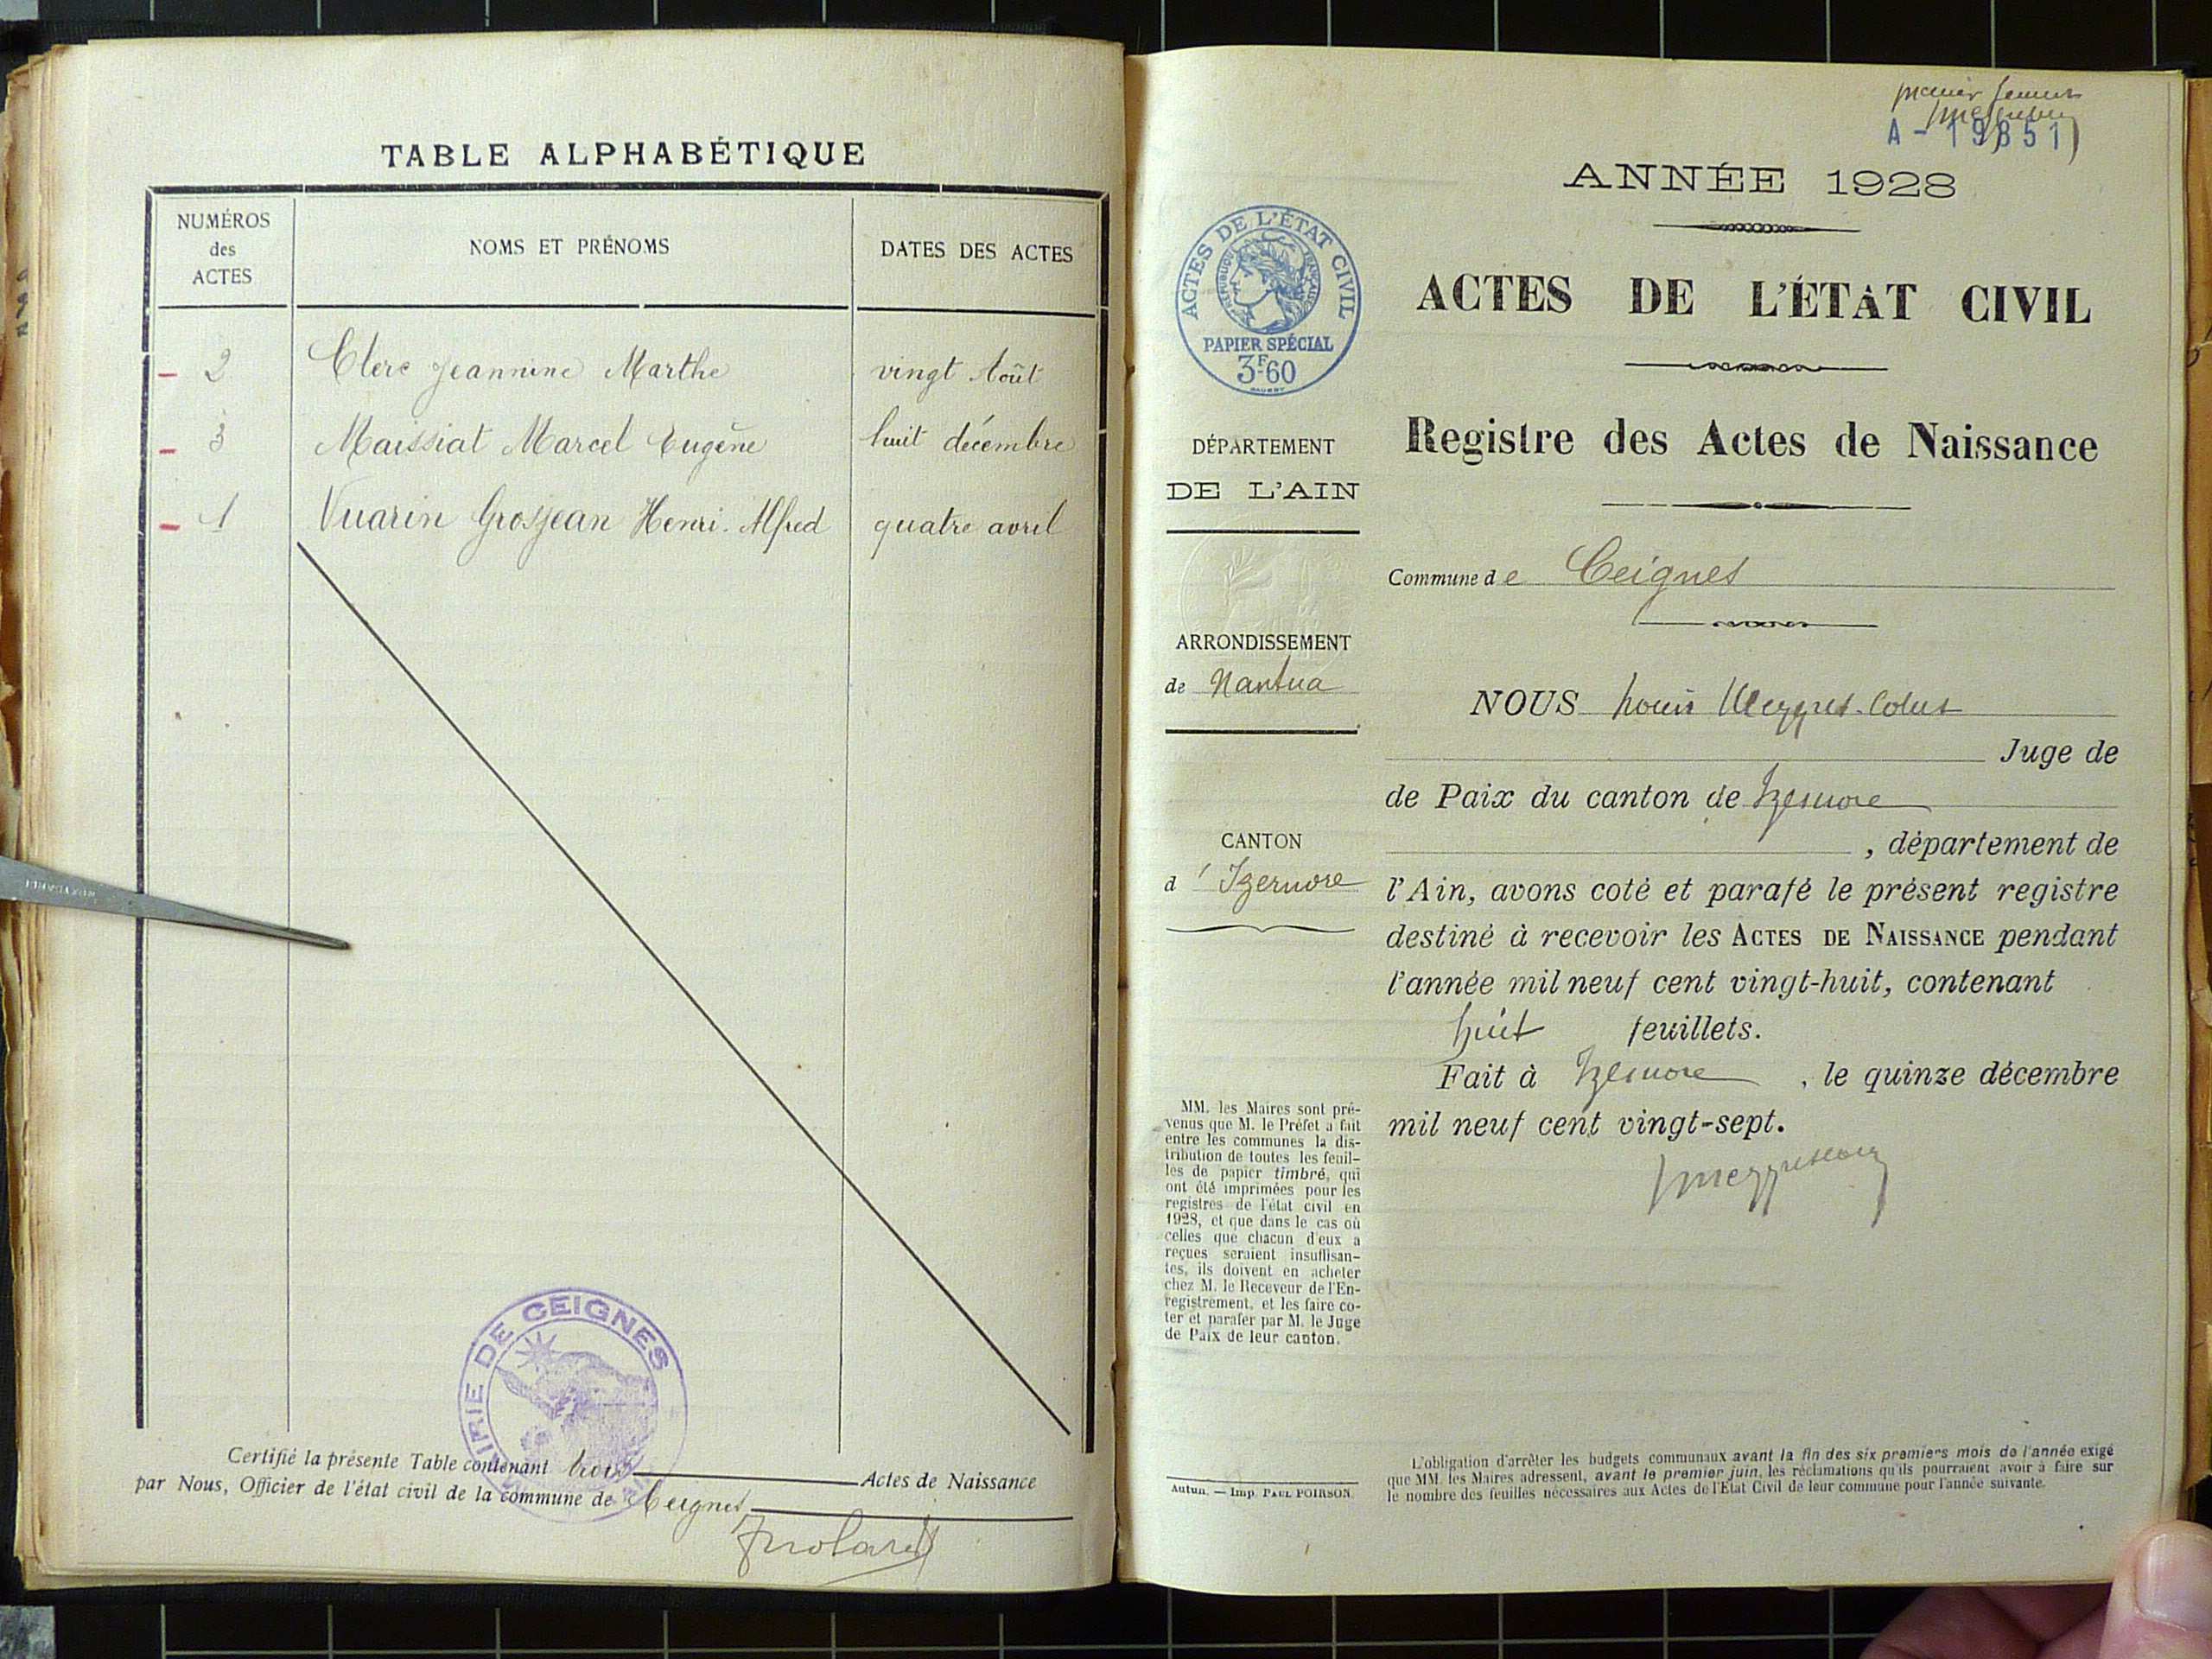 TABLE ALPHABÉTIQUE
NUMÉROS
des
ACTES
NOMS ET PRÉNOMS
DATES DES ACTES
2 Clerc Jeannine Marthe vingt Août
3 Maissiat Marcel Eugène huit décembre
1 Vuarin Grosjean Henri Alfred quatre avril
MAIRIE DE CEIGNES
Certifié la présente Table contenant trois Actes de Naissance
par Nous, Officier de l'état civil de la commune de Ceignes
premier
A - 19851
ANNÉE 1928
ACTES DE L'ÉTAT CIVIL
RÉPUBLIQUE FRANÇAISE
PAPIER SPÉCIAL
3F60
ACTES DE L'ÉTAT CIVIL
Registre des Actes de Naissance
DÉPARTEMENT
DE L'AIN
Commune de Ceignes
ARRONDISSEMENT
de Nantua
NOUS Louis
Juge de
de Paix du canton de Izernore
CANTON
d'Izernore
, département de
l'Ain, avons coté et parafé le présent registre
destiné à recevoir les ACTES DE NAISSANCE pendant
l'année mil neuf cent vingt-huit, contenant
huit feuillets.
Fait à Izernore, le quinze décembre
mil neuf cent vingt-sept.
MM. les Maires sont pré-
venus que M. le Préfet a fait
entre les communes la dis-
tribution de toutes les feuil-
les de papier timbré, qui
ont été imprimées pour les
registres de l'état civil en
1928, et que dans le cas où
celles que chacun d'eux a
reçues seraient insuffisan-
tes, ils doivent en acheter
chez M. le Receveur de l'En-
registrement, et les faire co-
ter et parafer par M. le Juge
de Paix de leur canton.
Autun. — Imp. PAUL POIRSON.
L'obligation d'arrêter les budgets communaux avant la fin des six premiers mois de l'année exige
que MM. les Maires adressent, avant le premier juin, les réclamations qu'ils pourraient avoir à faire sur
le nombre des feuilles nécessaires aux Actes de l'Etat Civil de leur commune pour l'année suivante.